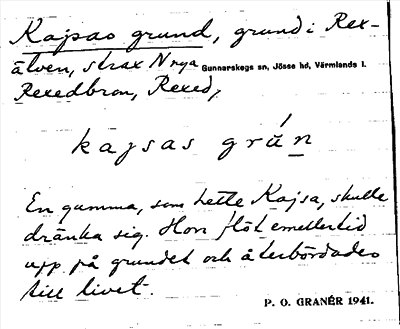 Kajsas grund, grund i Rex-
älven, strax N nya Gunnarskogs sn, Jösse hd, Värmlands l.
Rexedbron, Rexed,
kajsas grún
En gumma, som hette Kajsa, skulle
dränka sig. Hon flöt emellertid
upp på grundet och återbördades
till livet.
P. O. GRANÉR 1941.